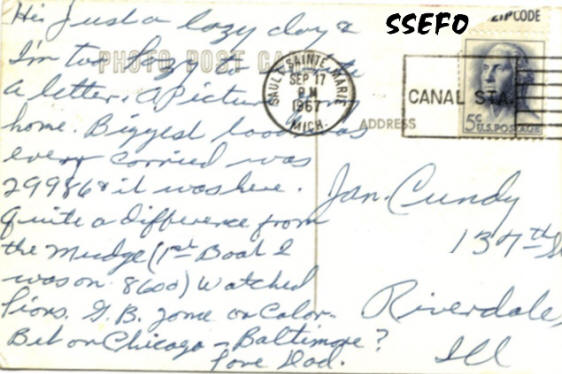 SSEFO
ZIP CODE
PHOTO POST CARD
SAULT SAINTE MARIE
SEP 17
PM
1967
MICH.
CANAL STA.
5¢
U.S. POSTAGE
ADDRESS
Hi. Just a lazy day &
I'm too lazy to write
a letter. A picture
home. Biggest load
ever carried was
29986 & it was here.
Quite a difference from
the Mudge (1st Boat I
was on 8600) Watched
Lions. G.B. game on Color.
Bet on Chicago - Baltimore?
Love Dad.
Jan. Cundy
137th
Riverdale,
Ill